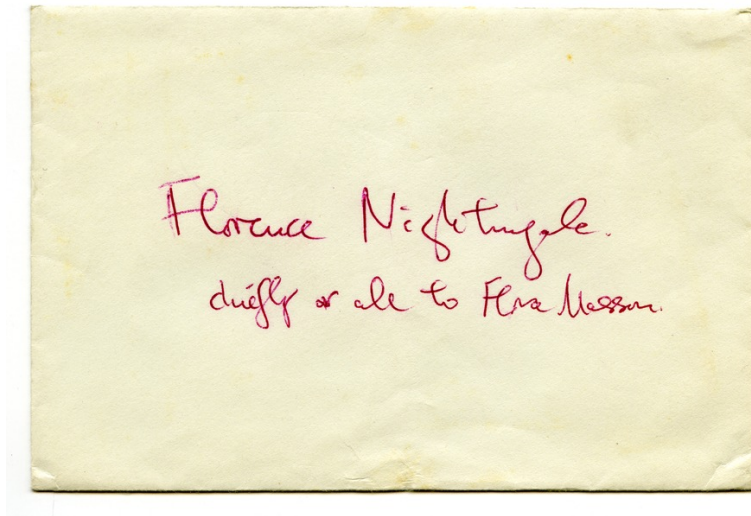 Florence Nightingale.
chiefly or all to Flora Masson.